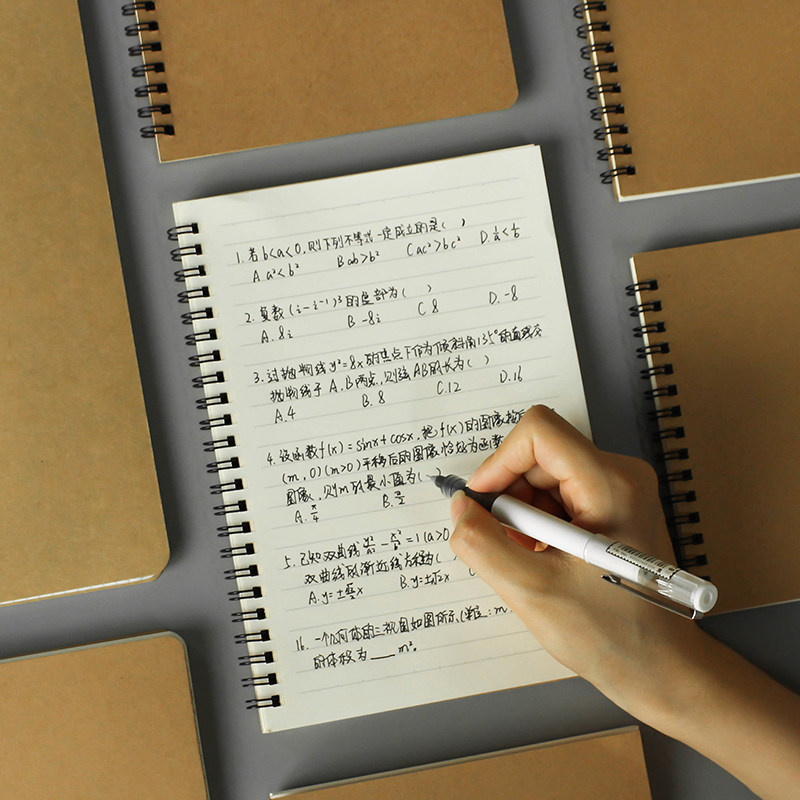 1. 若b<a<0,则下列不等式一定成立的是( )
A. a²<b² B ab>b² C ac²>bc² D. 1/a<1/b
2. 复数(i-i⁻¹)³的虚部为( )
A. 8i B -8i C 8 D. -8
3. 过抛物线y²=8x的焦点下作为倾斜角135°的直线交
抛物线于A.B两点,则弦AB的长为( )
A.4 B. 8 C.12 D.16
4. 设函数f(x)=sinx+cosx,把f(x)的图像按
(m,0)(m>0)平移后的图像恰好为函数
图像,则m的最小值为( )
A. π/4 B. π/2
5. 已知双曲线 =1(a>0
双曲线的渐近线方程为(
A. y=± x B. y=± x
16. 一个几何体的三视图如图所示,(单位:m
的体积为___m³。